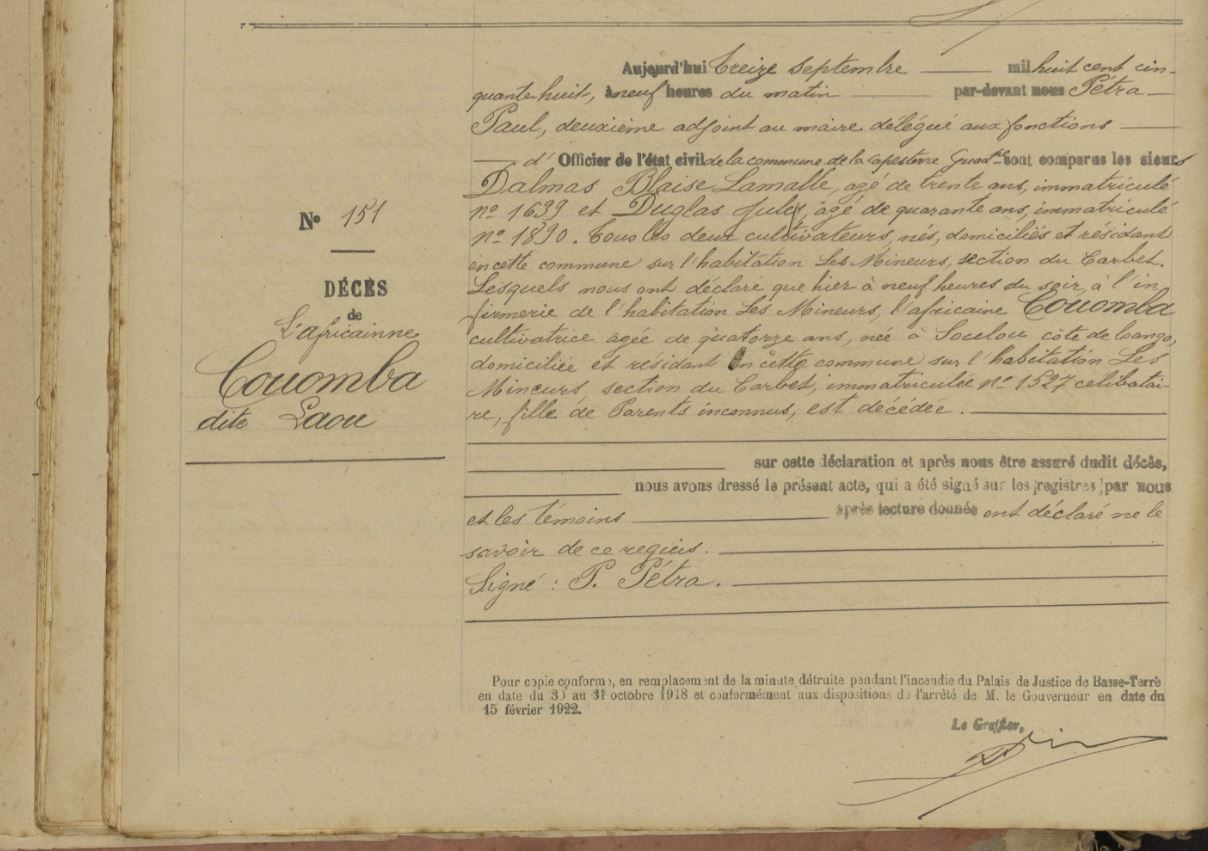 Aujourd'hui treize septembre mil huit cent cin-
quante huit, à neuf heures du matin par-devant nous Pétra
Paul, deuxième adjoint au maire délégué aux fonctions
d' Officier de l'état civil de la commune de la Capesterre Guad.pe sont comparus les sieurs
Dalmas Blaise Lamalle, agé de trente ans, immatriculé
n.o 1639 et Duglas Jules, agé de quarante ans, immatriculé
n.o 1890. Tous les deux cultivateurs, nés, domiciliés et résidant
en cette commune sur l'habitation Les Mineurs, section du Carbet.
Lesquels nous ont déclaré que hier à neuf heures du soir, à l'in
firmerie de l'habitation Les Mineurs, l'africaine Couomba
cultivatrice agée de quatorze ans, née à côte de Congo,
domiciliée et résidant en cette commune sur l'habitation Les
Mineurs, section du Carbet, immatriculée n.o 1527 celibatai-
re, fille de Parents inconnus, est décédée.
N° 151
DÉCÈS
de
L'africainne
Couomba
dite Laou
sur cette déclaration et après nous être assuré dudit décès,
nous avons dressé le présent acte, qui a été signé sur les registres par nous
et les témoins après lecture donnée ont déclaré ne le
savoir de ce regicis.
Signé : P. Pétra.
Pour copie conforme, en remplacement de la minute détruite pendant l'incendie du Palais de Justice de Basse-Terre
en date du 30 au 31 octobre 1918 et conformément aux dispositions de l'arrêté de M. le Gouverneur en date du
15 février 1922.
Le Greffier,